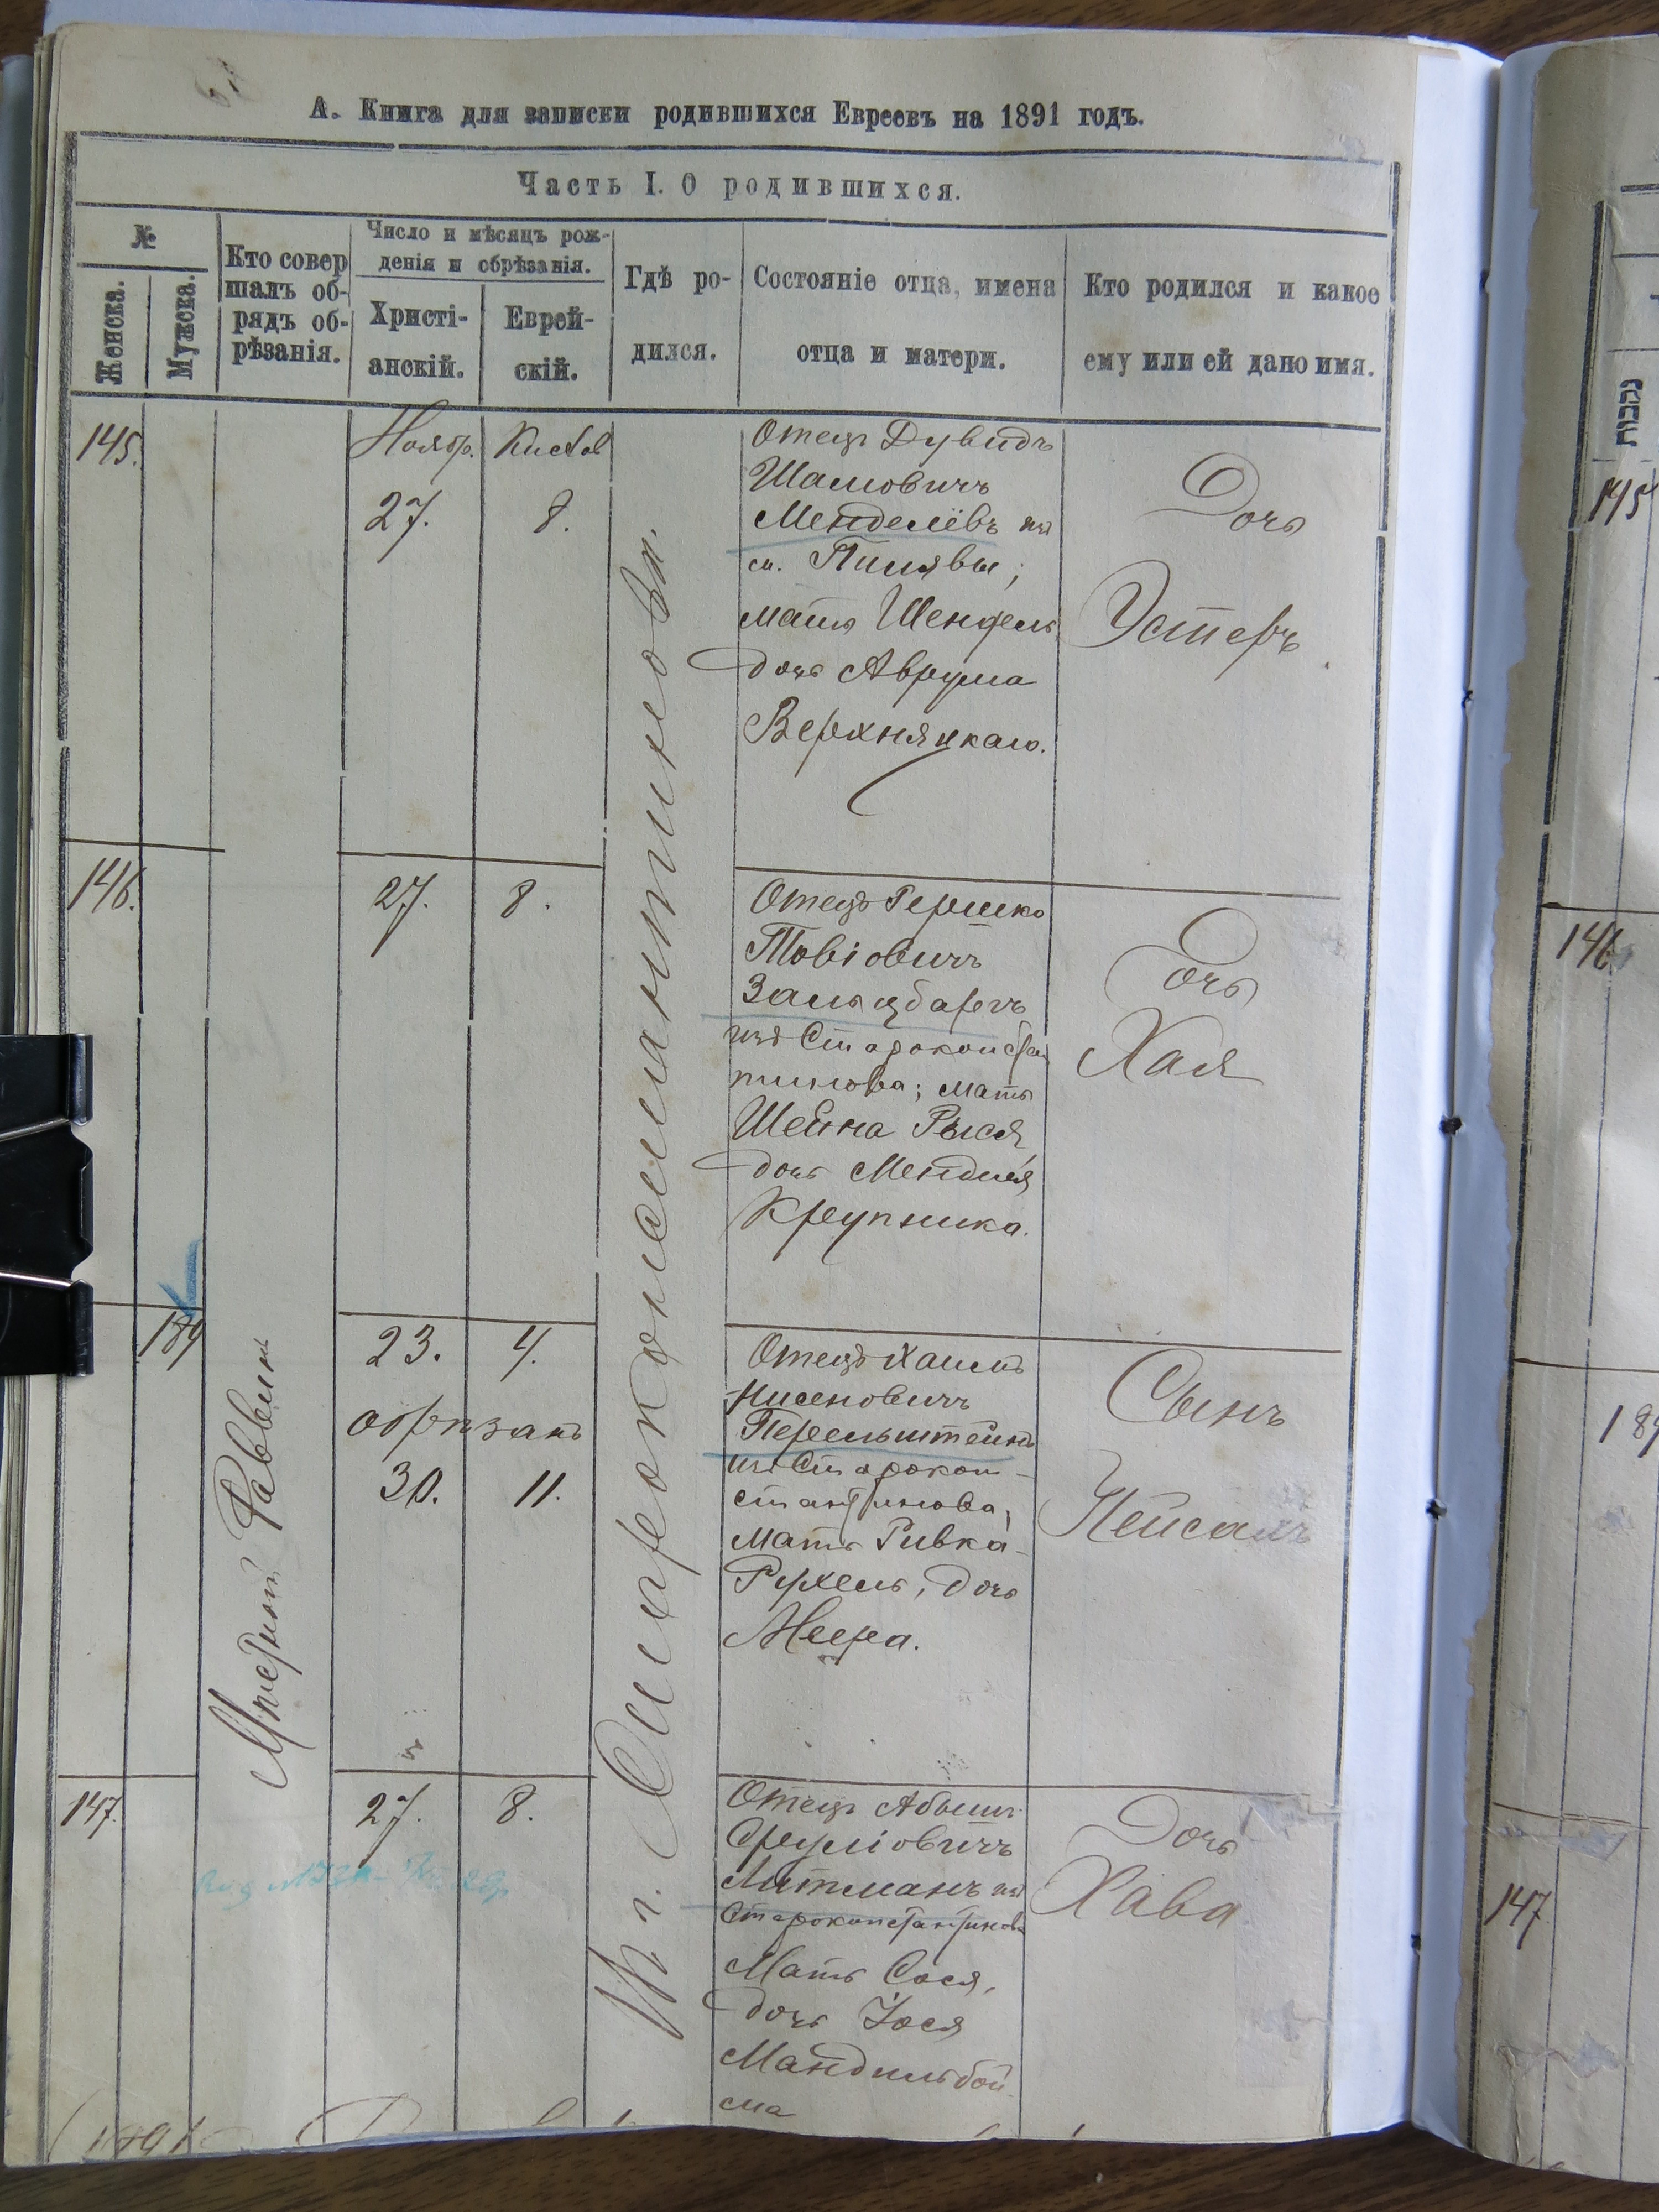 А. Книга для записки родившихся Евреевъ на 1891 годъ.
Часть I. О родившихся.
№
Женска.
Мужска.
Кто совер
шалъ об-
рядъ об-
рѣзанія.
Число и мѣсяцъ рож-
денія и обрѣзанія.
Христі-
анскій.
Еврей-
скій.
Гдѣ ро-
дился.
Состояніе отца, имена
отца и матери.
Кто родился и какое
ему или ей дано имя.
145.
Ноябр.
27.
Кислев
8.
Отецъ Дувидъ
Шамовичъ
Менделевъ изъ
м. Пилявы;
мать Шендель
дочь Аврума
Верхняцкаго.
Дочь
Эстеръ
146.
27.
8.
Отецъ Гершко
Товіовичъ
Зальцбергъ
изъ Староконстан
тинова; мать
Шейна Рыся
дочь Менделя
Крупника.
Дочь
Хая
189
23.
4.
обрѣзанъ
30.
11.
Отецъ Хаимъ
Нисеновичъ
Перельштейнъ
изъ Старокон-
стантинова,
Мать Ривка-
Рухель, дочь
Меера.
Сынъ
Пейсахъ
147.
27.
8.
Отецъ Абрам
Сруліовичъ
Литманъ изъ
Староконстантинова
Мать Сося,
дочь Іося
Мандильбой-
ма
Дочь
Хава
Мѣстный Раввинъ
Въ г. Староконстантиновѣ.
נקבות
145
146
189
147